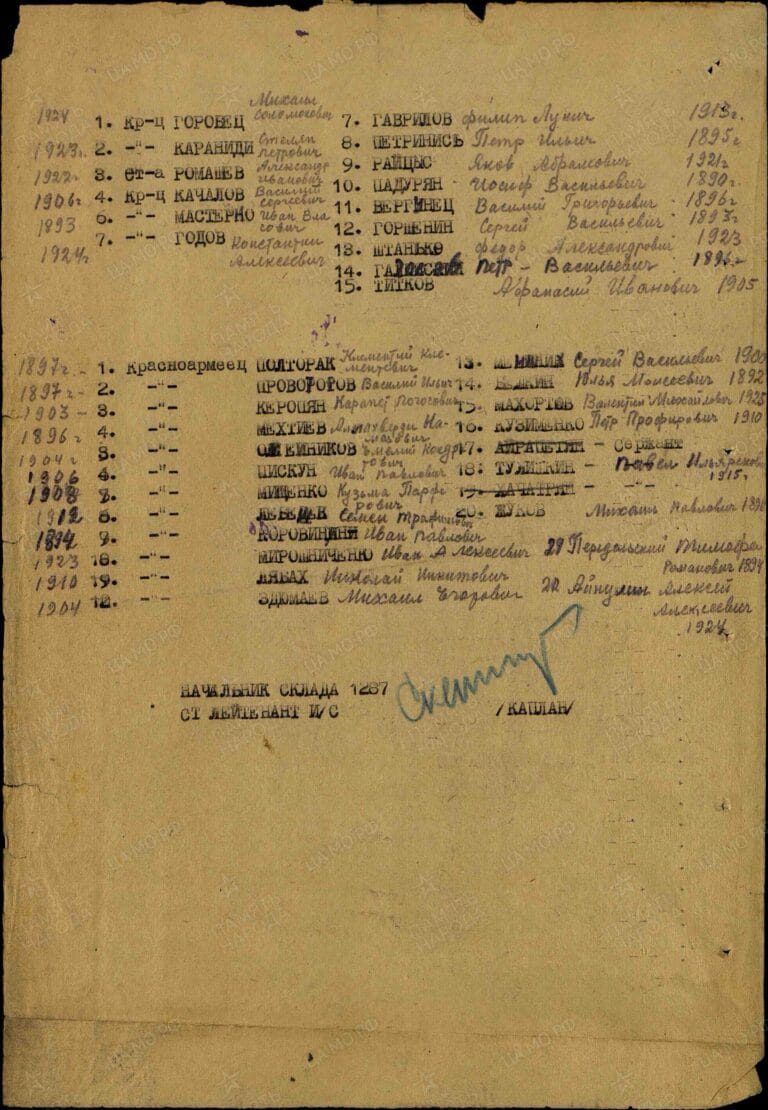 1924 1. Кр-ц ГОРОВЕЦ Михаил Соломонович
1923 г. 2. -"- КАРАНИДИ Стелян Петрович
1922 г. 3. Ст-а РОМАШЕВ Александр Иванович
1906 г. 4. Кр-ц КАЧАЛОВ Василий Сергеевич
1893 6. -"- МАСТЕРНО Иван Власович
1924 г. 7. -"- ГОДОВ Константин Алексеевич
7. ГАВРИЛОВ Филип Лукич 1913 г.
8. ПЕТРИНИСЬ Петр Ильич 1895 г.
9. РАЙЦЫС Яков Абрамович 1921 г.
10. ПАДУРЯН Иосиф Васильевич 1890 г.
11. ВЕРГИНЕЦ Василий Григорьевич 1896 г.
12. ГОРШЕНИН Сергей Васильевич 1893 г.
13. ШТАНЬКО Федор Александрович 1923
14. Петр - Васильевич 1896 г.
15. ТИТКОВ Афанасий Иванович 1905
1897 г. - 1. Красноармеец ПОЛТОРАК Клементий Клементевич
1897 г. - 2. -"- ПРОВОТОТОВ Василий Ильич
1903 - 3. -"- КЕРОПЯН Карапет Погосович
1896 г. 4. -"- МЕХТИЕВ
1904 г. 3. -"- ОШЕЙНИКОВ
1906 4. -"- ПИСКУН Иван Павлович
1908 -"- МИЩЕНКО Кузьма Парфірович
1912 8. -"- ЛЕБЕДЕВ Семен
1894 9. -"- КОРОВИНДИН Иван Павлович
1923 18. -"- МИРОШНИЧЕНКО Иван Алексеевич
1910 19. -"- ЛЯБАХ Николай Никитович
1904 12. -"- ЗДЮМАЕВ Михаил Егорович
13. Сергей Васильевич 1900
14. Юлья Моисеевич 1892
15. МАХОРТОВ Валентин Михайлович 1925
16. КУЗИМЕНКО Петр Профирович 1910
17. АЙРАПЕТЯН - Сержант
18: ТУЛИШКИН - Павел 1915 г.
19. ХАЧАТРЯН - -"-
20. ЖУКОВ Михаил Павлович 1896
Тимофей Романович 1894
20 Айпулин Алексей Алексеевич 1924
НАЧАЛЬНИК СКЛАДА 1287
СТ ЛЕЙТЕНАНТ И/С /КАПЛАН/
ЦАМО РФ